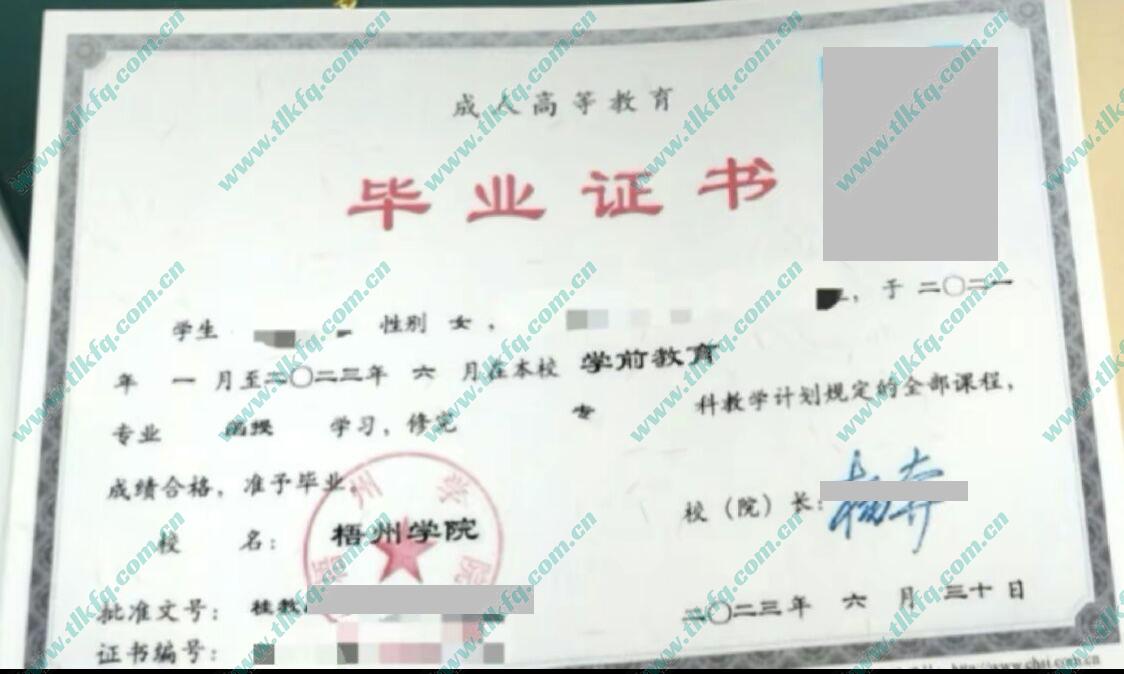 成人高等教育
毕业证书
学生 性别 女， ，于 二〇二一
年 一 月至二〇二三年 六 月在本校 学前教育
专业 函授 学习，修完 专 科教学计划规定的全部课程，
成绩合格，准予毕业。
校 名： 梧州学院 校（院）长：
批准文号： 桂教
二〇二三年 六 月 三十 日
证书编号：
www.tlkfq.com.cn